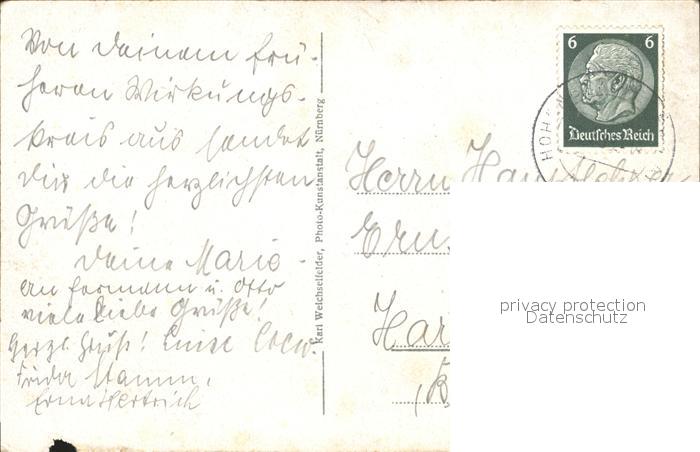 Von Deinem frü-
heren Wirkungs-
kreis aus sendet
Dir die herzlichsten
Grüße!
Deine Marie
an Hermann u. Otto
viele liebe Grüße!
Herzl. Gruß! Luise
Frida Stamm,
Erna Hertrich
Karl Weichselfelder, Photo-Kunstanstalt, Nürnberg
6 6
Deutsches Reich
HOH
Herrn
privacy protection
Datenschutz